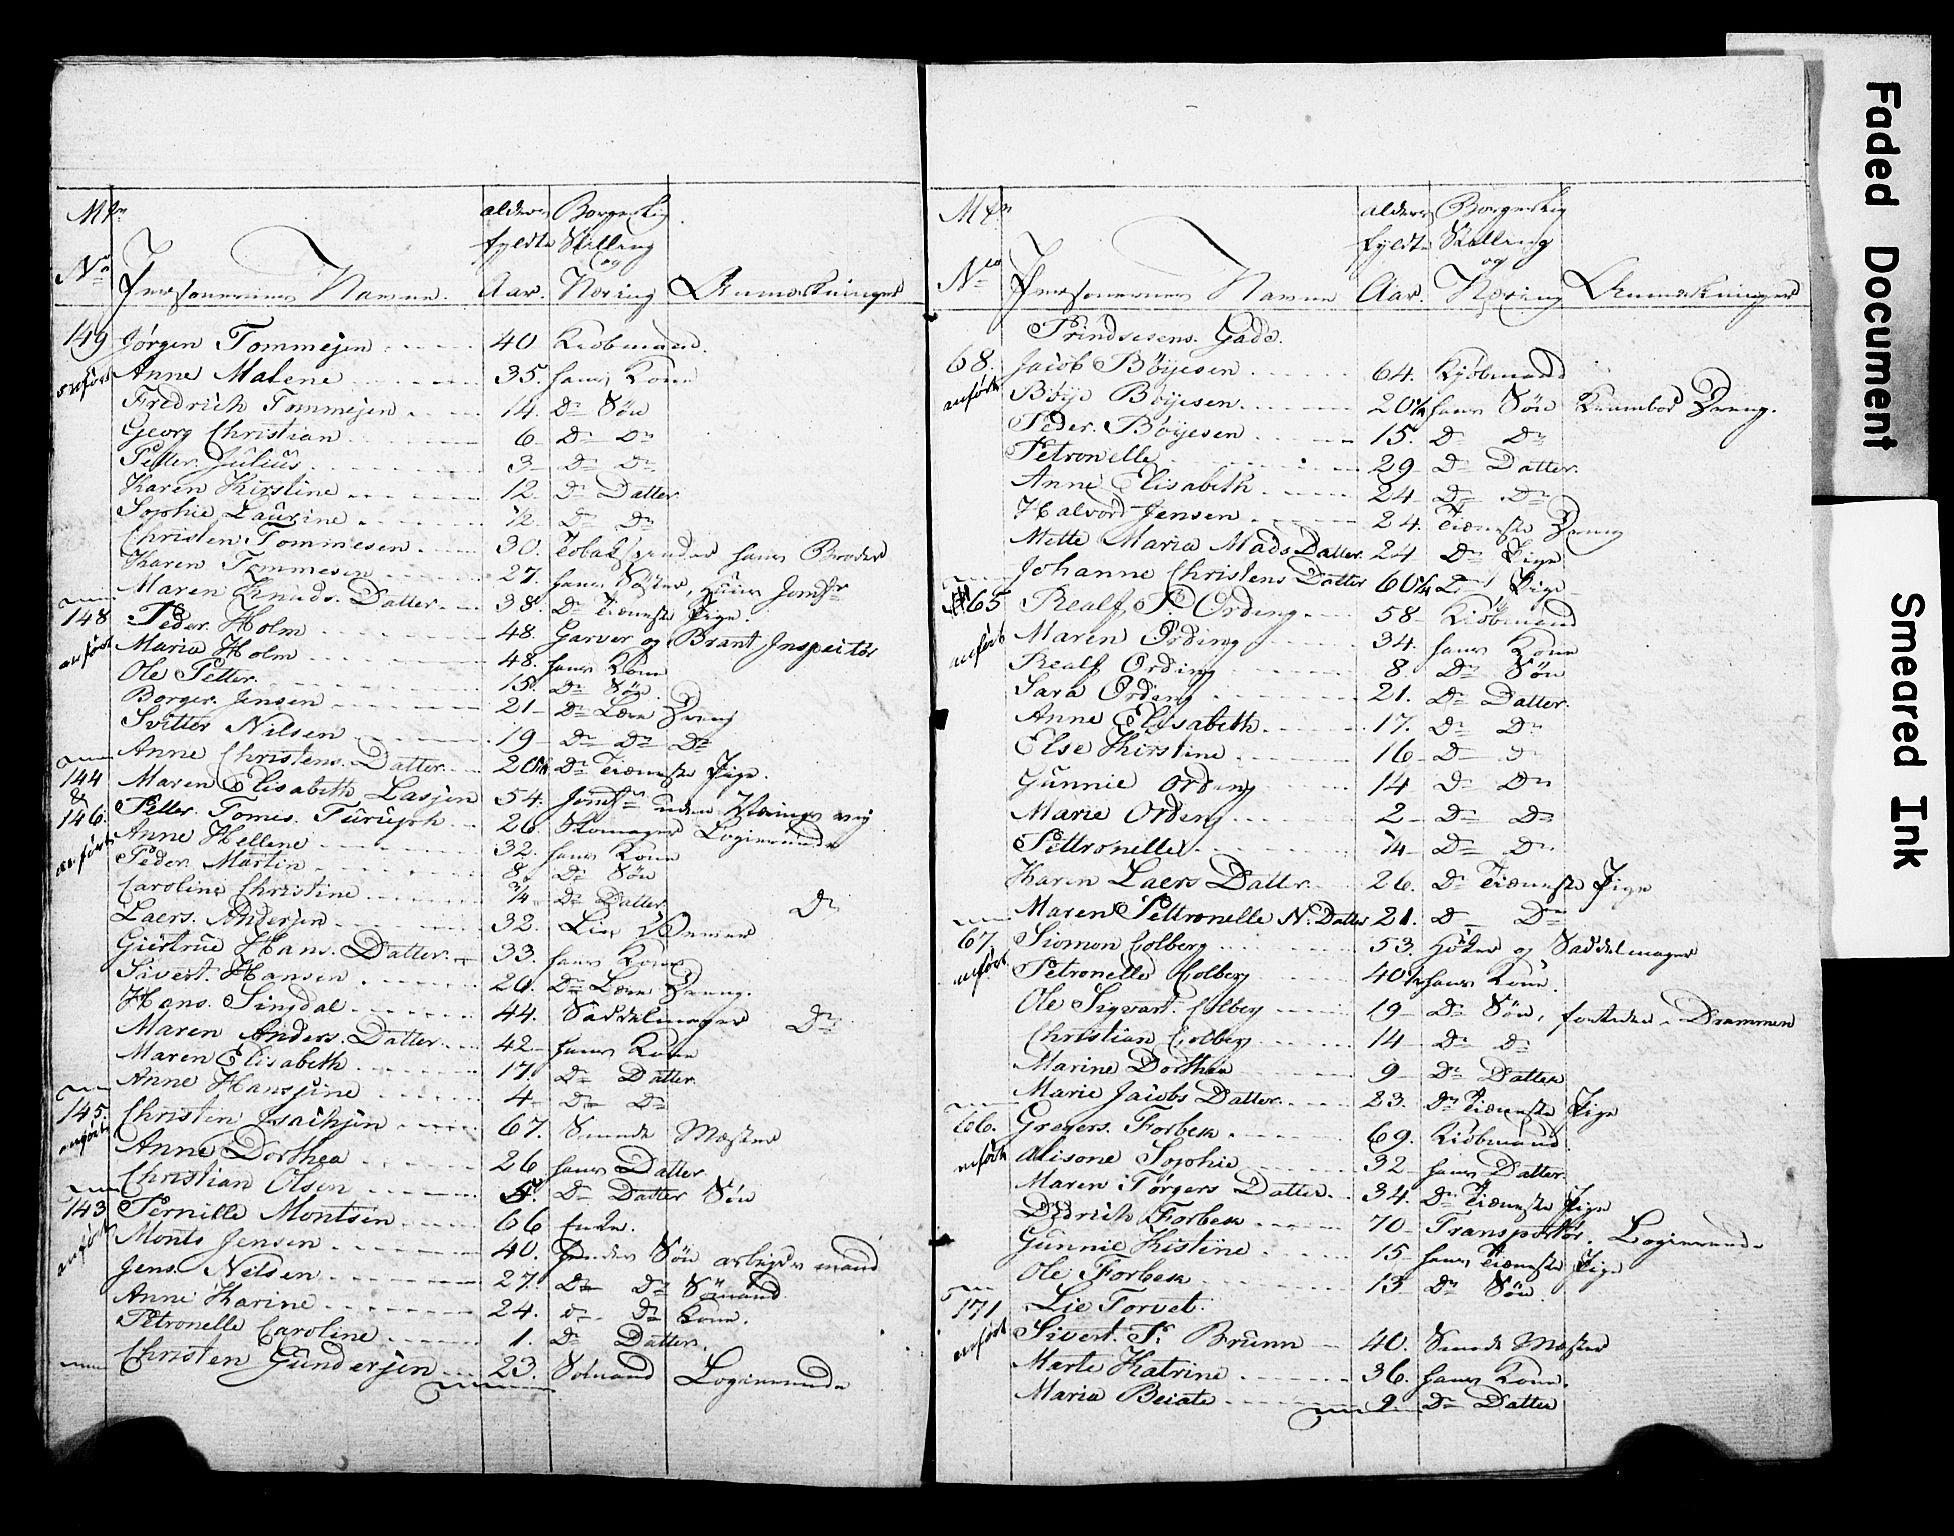 Mtr No | Personernes Navne. | Alders fyldte Aar. | Borgerlig Stilling og Næring | Anmerkninger
149 Jörgen Tommesen 40 Kiøbmand.
anført Anne Malene 35. hans Kone
Fredrich Tommesen 14. Do Søn
Georg Christian 6 Do Do
Petter Julius 3 Do Do
Karen Kirstine 12 Do Datter
Sophie Laurine ½ Do Do
Christen Tommesen 30. Tobakspinder hans Broder
Karen Tommesen 27. hans Søster, Jomfr
Maren Knuds Datter 38. Do Tieneste Pige.
148 Peder Holm 48. Garver og Brant Inspectör
anført Maria Holm 48. hans Kone
Ole Petter 15. Do Søn
Borger Jensen 21 Do Lære Dreng
Svitter Nilsen 19 Do Do Do
Anne Christens Datter 20¼ Do Tieneste Pige.
144 Maren Elisabeth Lassen 54. Jomfr uden Nærings vej
& 146. Petter Tomes. 26 Skomager Logierende
anført Anne Hellene 32. hans Kone
Peder Martin 8 Do Søn
Caroline Christine ¾ Do Datter
Laers Andersen 32. Do
Giertrue Hans Datter 33. hans Kone
Sivert Hansen 20. Do Lære Dreng.
Hans Singdal 44. Saddelmager Do
Maren Anders Datter 42 hans Kone
Maren Elisabeth 17. Do Datter
Anne Hansine 4 Do Do
145. Christen Isachsen 67. Smede Mæster
anført Anne Dorthea 26 hans Datter
Christian Olsen 5. Do Datter Søn
143 Pernille Montsen 66 Enke.
anført Monts Jensen 40. hendes Søn arbejds mand
Jens Nilsen 27. Do Do Sömand
Anne Karine 24. Do Do Kone.
Petronelle Caroline 1. Do Datter.
Christen Gundersen 23. Sömand Logierende
Mtr No | Personernes Navne | Alders fyldte Aar. | Borgerlig Stilling og Næring | Anmerkninger
Prindsesens Gade.
68. Jacob Böyesen 64. Kjöbmand
anført Böye Böyesen 20¼ hans Søn Krambod Dreng.
Peder Böyesen 15. Do Do
Petronelle 29 Do Datter
Anne Elisabeth 24 Do Do
Halvord Jensen 24. Tieneste Dreng
Mette Maria Mads Datter 24 Do Pige
Johanne Christens Datter 60¼ Do Pige
65 Realf P. Ording 58 Kiöbmand
anført Maren Ording 34. hans Kone
Realf Ording 8 Do Søn
Sara Ording 21. Do Datter.
Anne Elisabeth 17. Do Do
Else Kirstine 16 D D
Gunnie Ording 14 Do Do
Marie Ording 2 Do Do
Pettronelle ¼ Do Do
Karen Laers Datter 26. Do Tieneste Pige
Maren Pettronelle N. Datter 21. D Do
67. Siomon Colberg 53. Höker og Saddelmager
anført Petronelle Colberg 40¼ hans Kone.
Ole Sigvart Colberg 19 Do Søn, Drammen
Christian Colberg 14 Do Do
Marine Dorthea 9 Do Datter
Marie Jacobs Datter 23. Do Tieneste Pige
66. Gregers Forbek 69. Kiöbmand
anført Alisone Sophie 32 hans Datter
Maren Törgers Datter 34. Do Tieneste Pige
Didrich Forbek 70 Transportör. Logierende
Gunnie Kistine 15 hans Tieneste Pige
Ole Forbek 13 Do Søn
171 Lie Torvet.
anført Sivert P. Brunn 40. Smede Mæster
Marte Katrine 36. hans Kone.
Maria Beiate 9 Do Datter
Faded Document
Smeared Ink